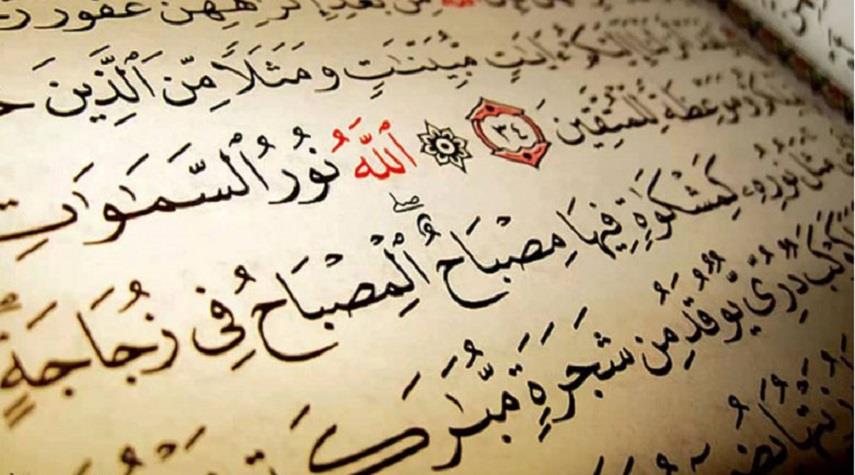 ٱللَّهَ مِنۢ بَعۡدِ إِكۡرَٰهِهِنَّ غَفُورٞ
ءَايَٰتٖ مُّبَيِّنَٰتٖ وَمَثَلٗا مِّنَ ٱلَّذِينَ
وَمَوۡعِظَةٗ لِّلۡمُتَّقِينَ ٣٤ ٱللَّهُ نُورُ ٱلسَّمَٰوَٰتِ
مَثَلُ نُورِهِۦ كَمِشۡكَوٰةٖ فِيهَا مِصۡبَاحٌۖ ٱلۡمِصۡبَاحُ فِي زُجَاجَةٍۖ
كَوۡكَبٞ دُرِّيّٞ يُوقَدُ مِن شَجَرَةٖ مُّبَٰرَكَةٖ